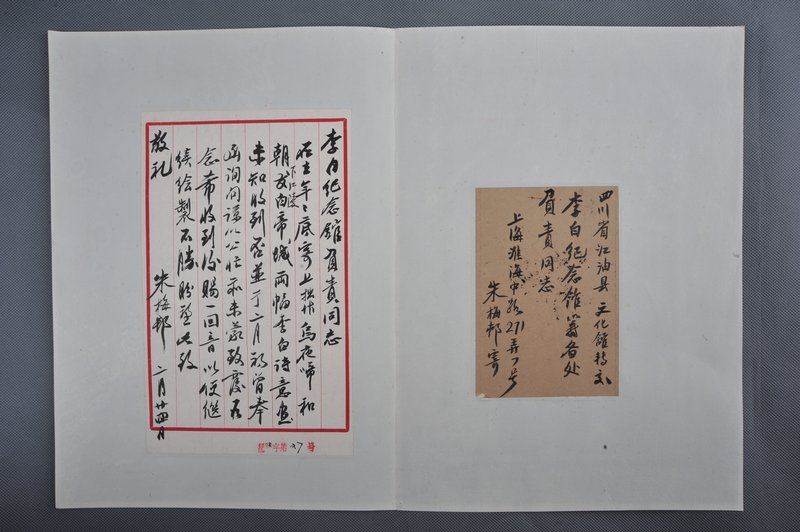 四川省江油县文化館转交
李白紀念館籌备处
負責同志
上海淮海中路271弄7号
朱梅邨寄
李白纪念館負責同志
在去年々底寄上拙作烏夜啼和
朝发白帝城两幅李白诗意画
下江陵
未知收到否並于二月初曾奉
函询问谅以公忙而未蒙致覆为
念希收到后赐一回音以便继
续绘製不勝盼望此致
敬礼
朱梅邨 二月廿四日
字第27号